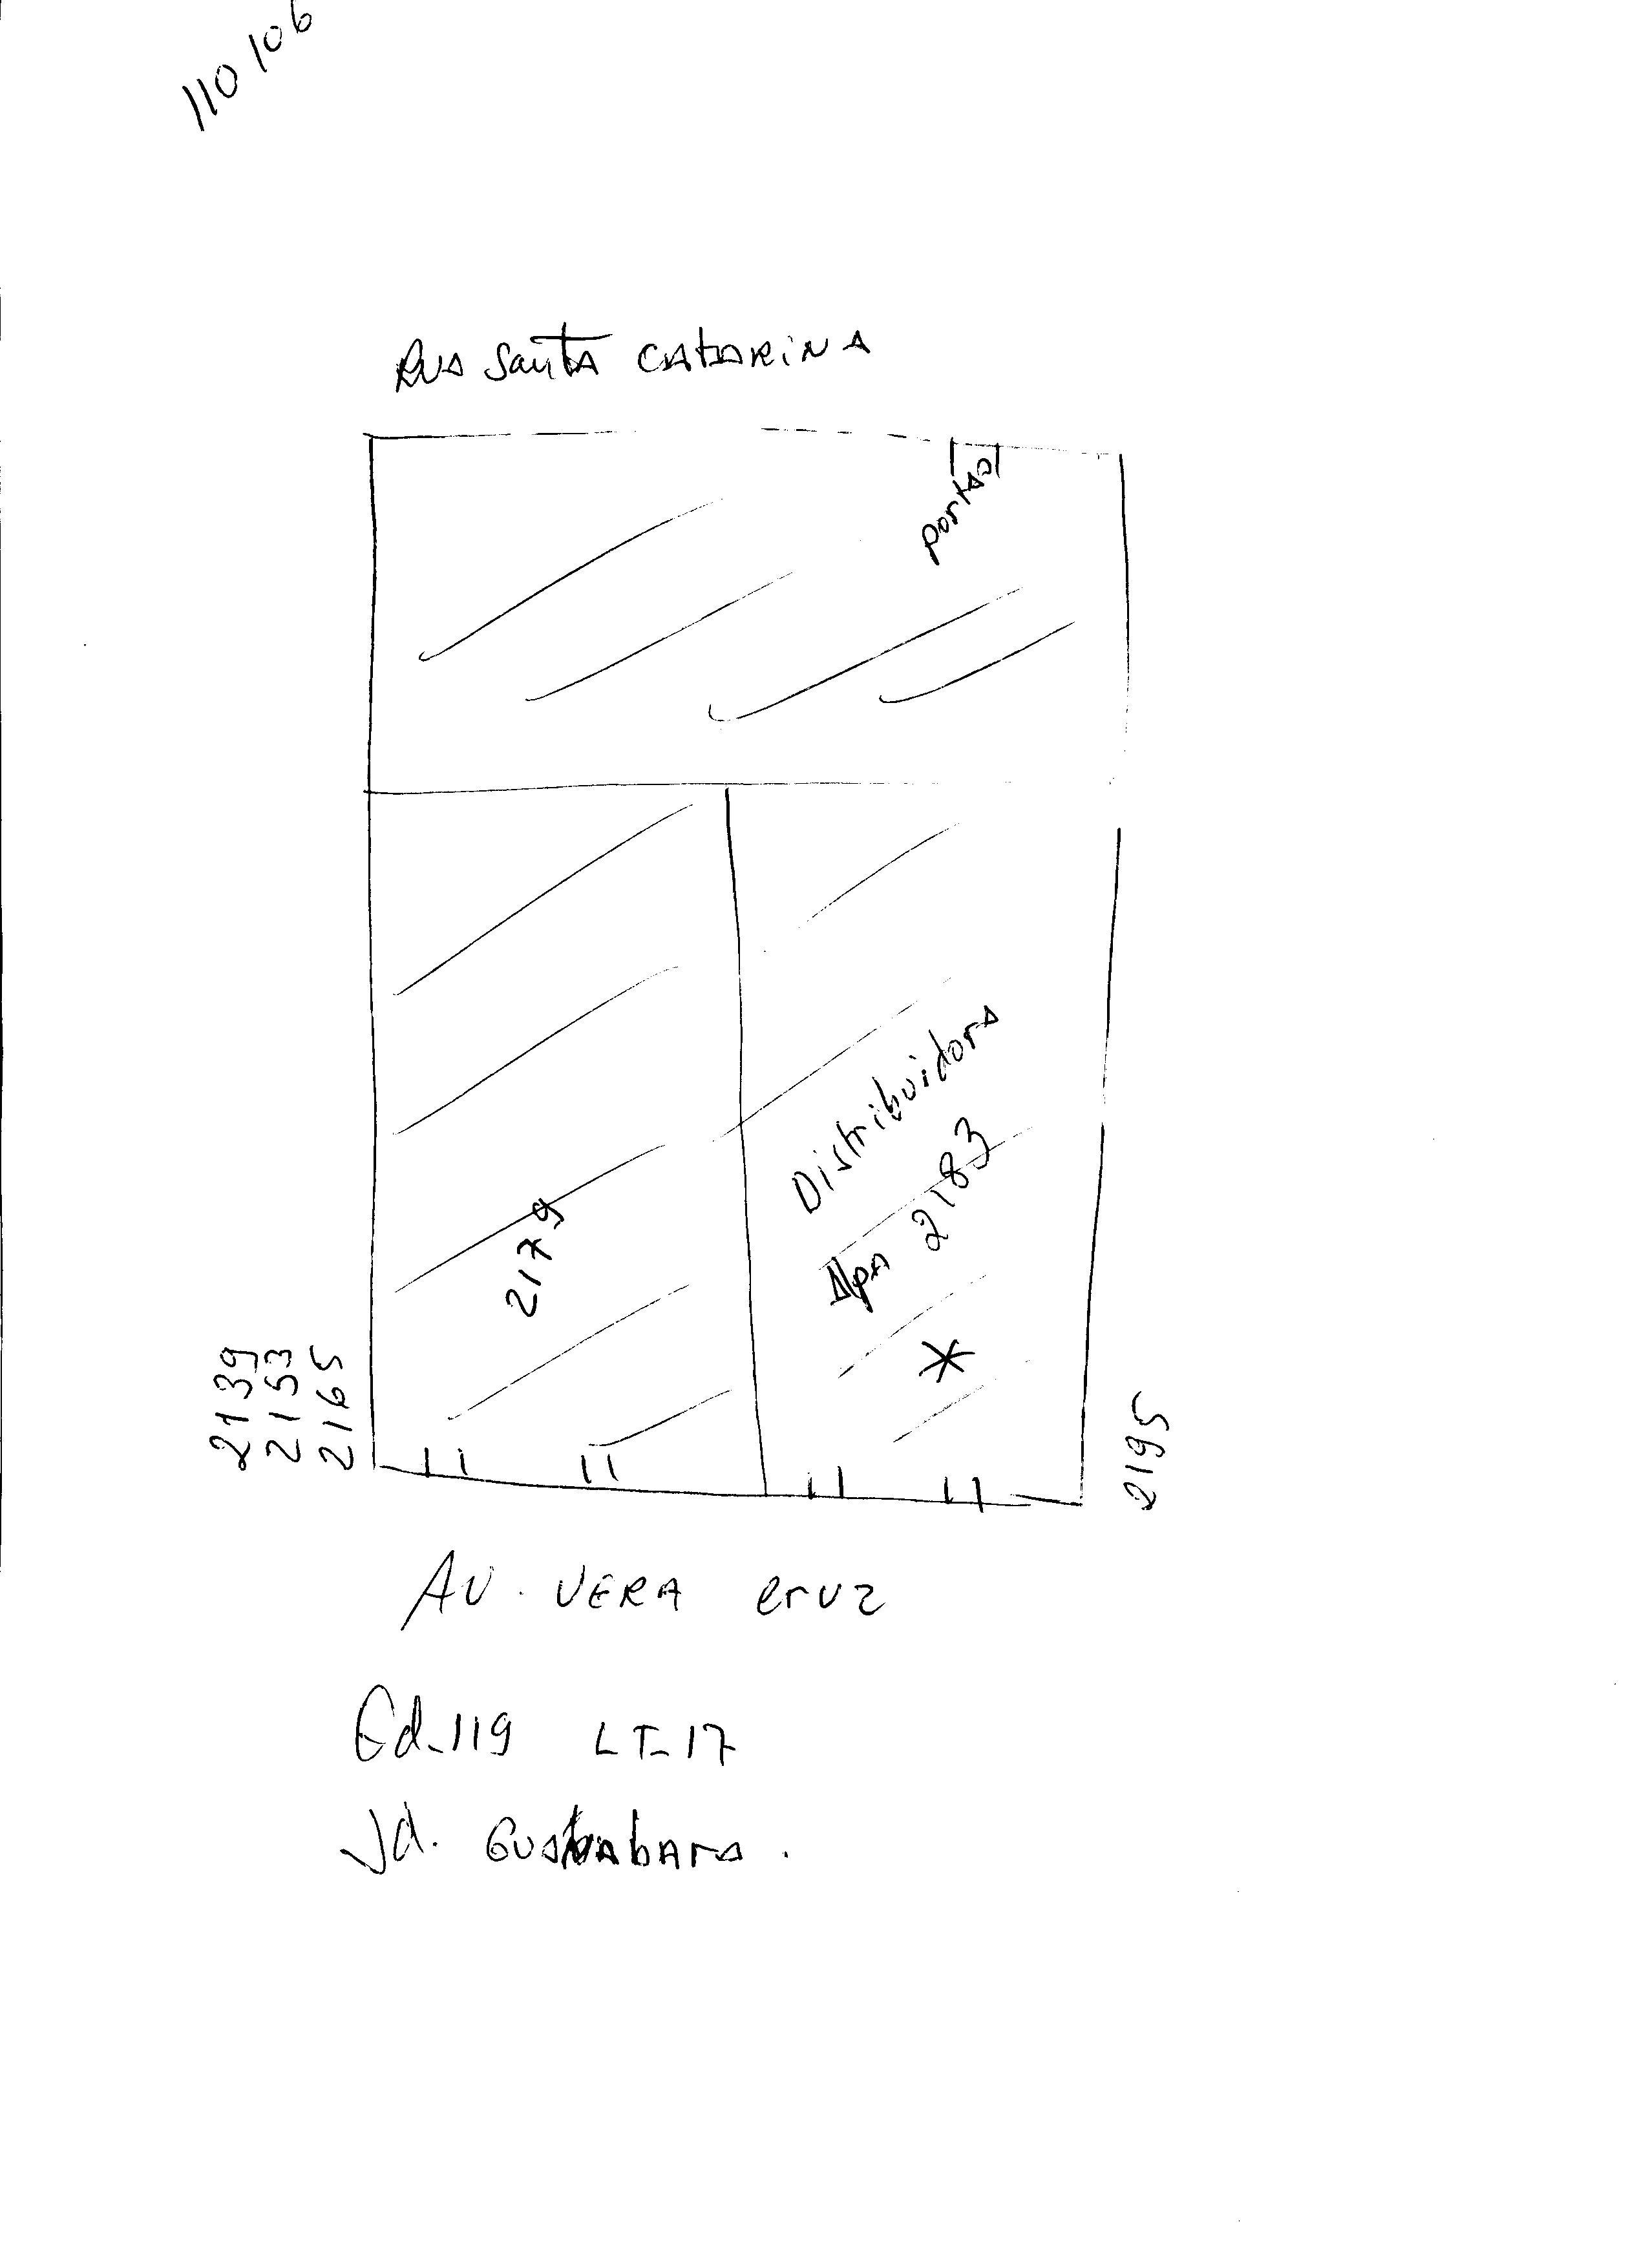 110 106
Rua Santa Catarina
portão
Distribuidora
2183
2179
2139
2153
2165
2195
Av. Vera Cruz
Qd-119 LT-17
Jd. Guanabara.